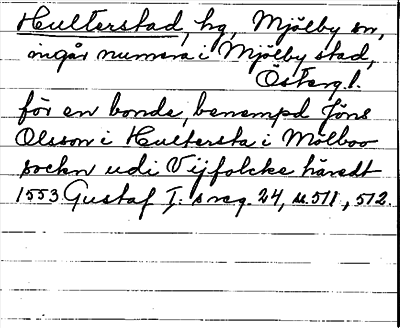 Hulterstad, hg, Mjölby sn,
ingår numera i Mjölby stad,
Österg. l.
för en bonde, benempd Jöns
Olsson i Hultersta i Mölboo
sockn udi Vijfolcke häredt
1553 Gustaf I. s reg. 24, s. 511, 512.